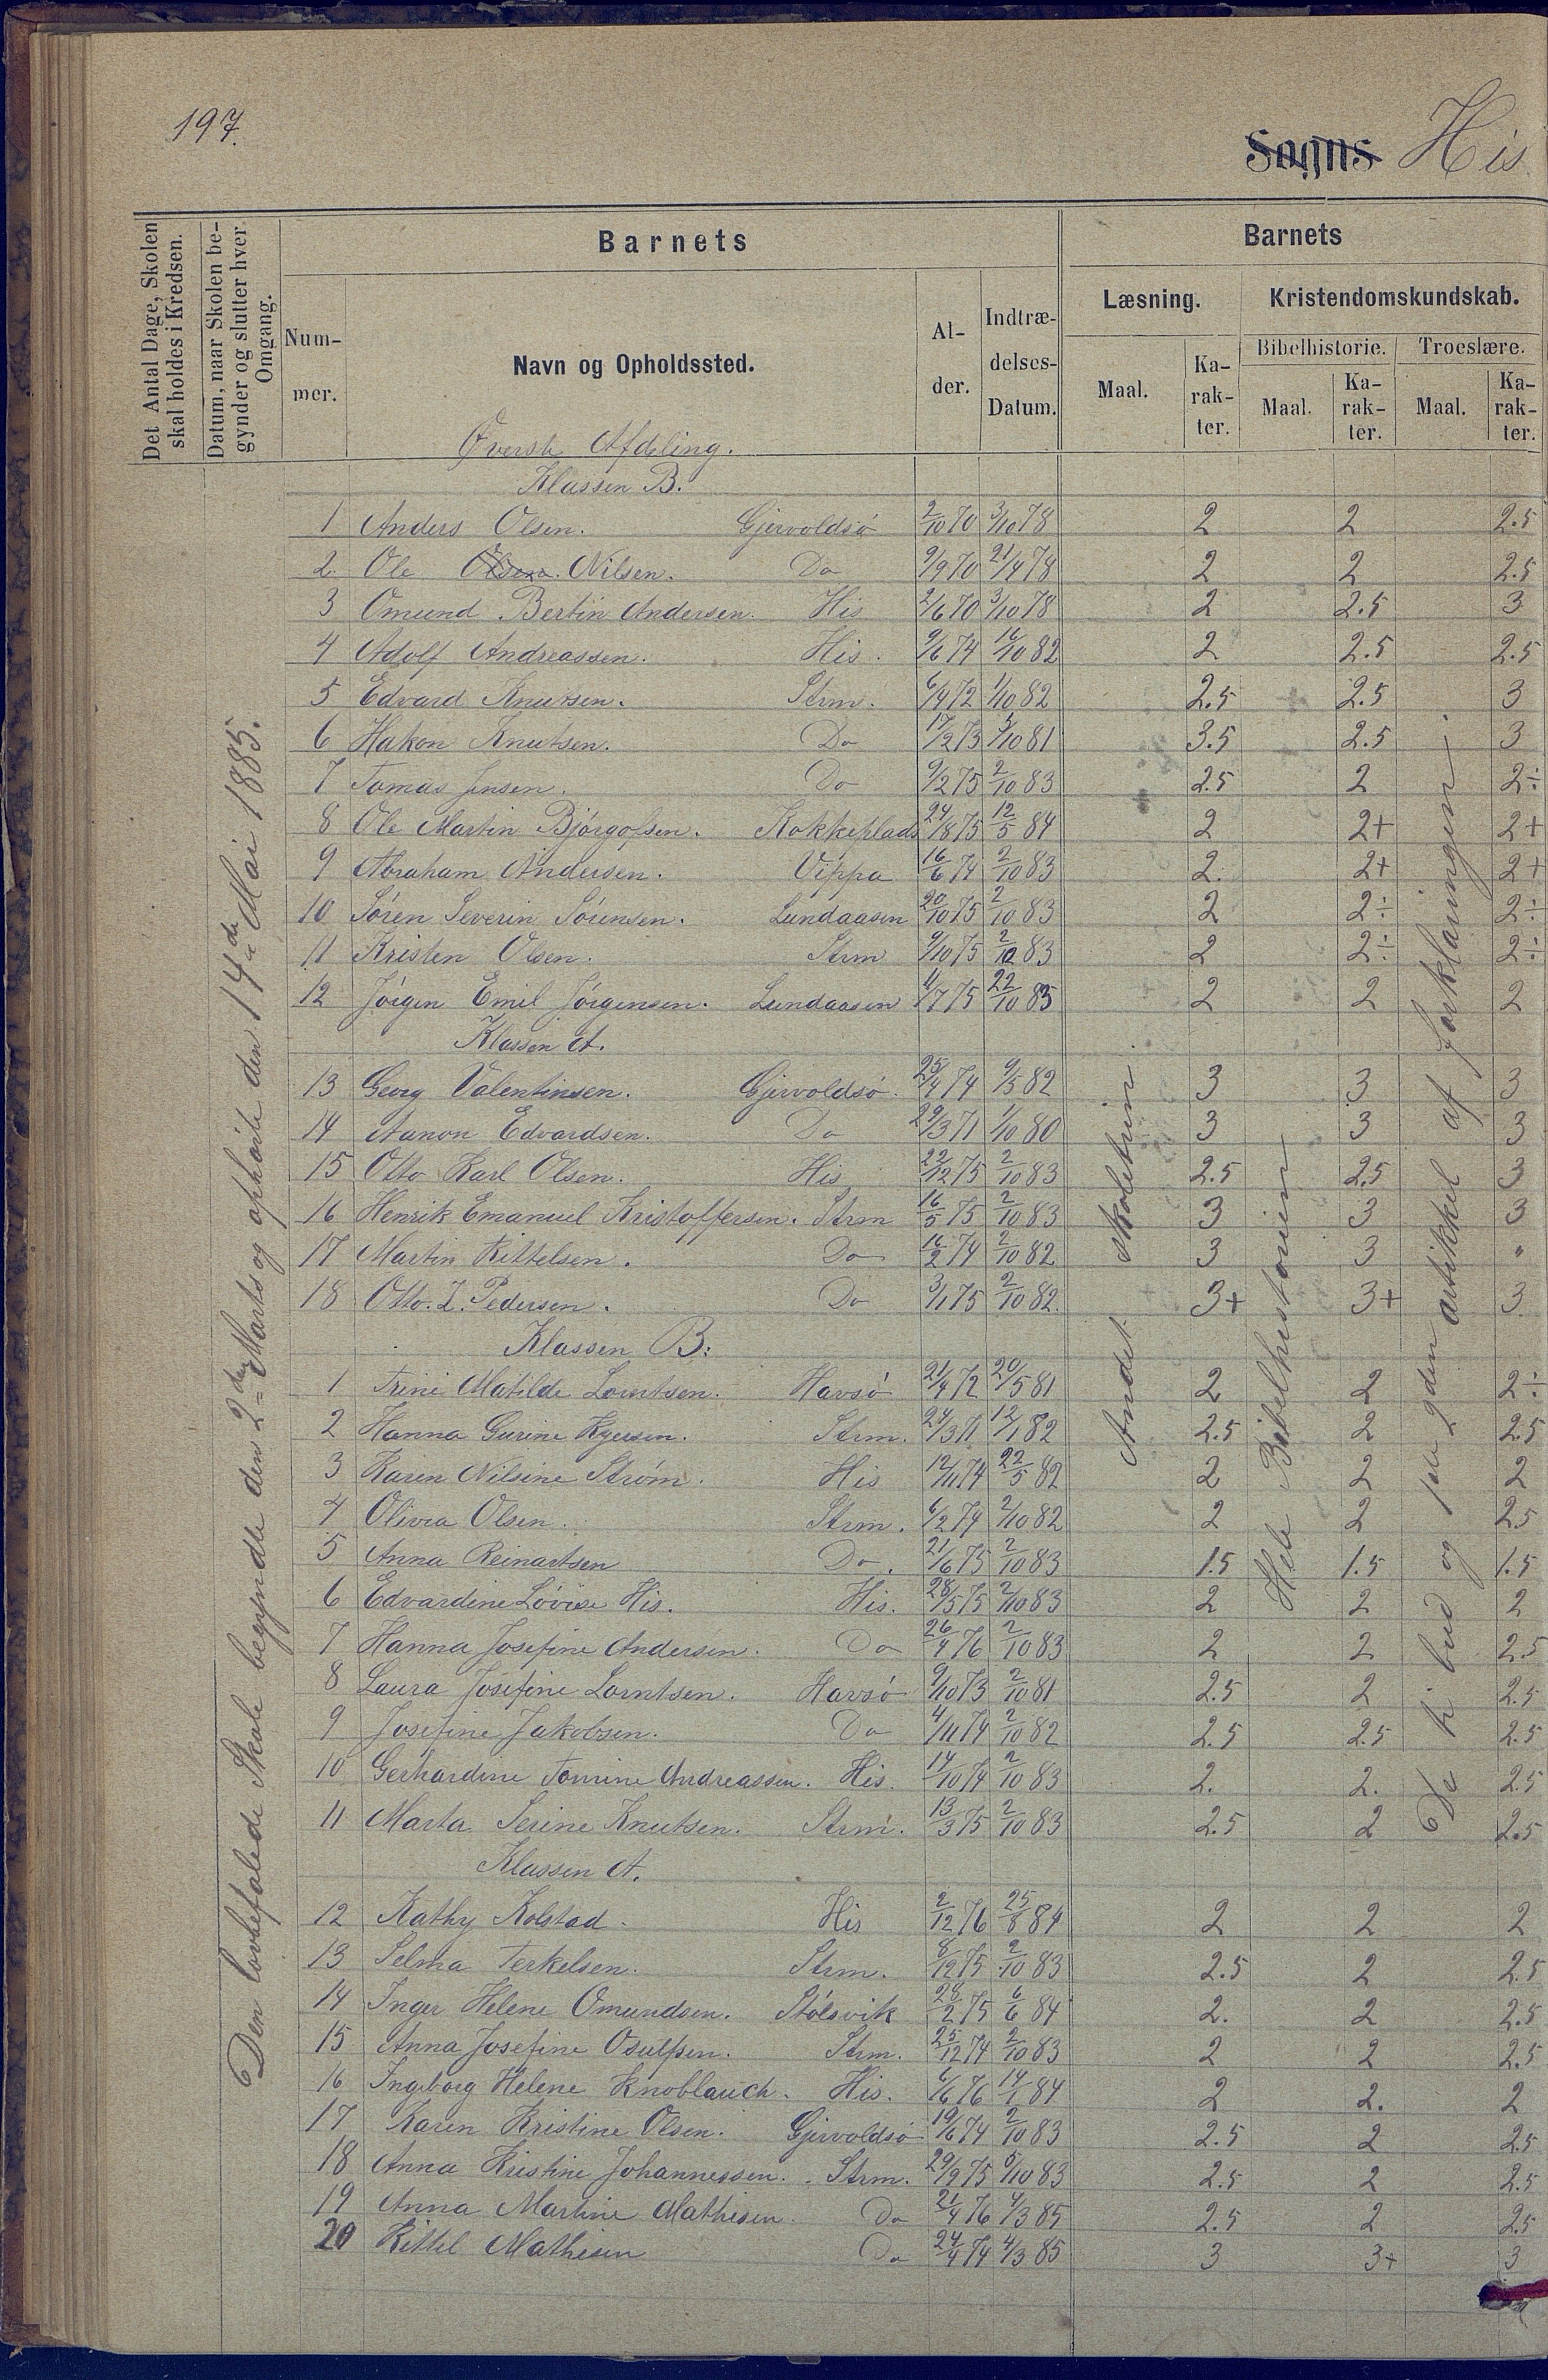 197.
Sogns His
Det Antal Dage, Skolen skal holdes i Kredsen.
Datum, naar Skolen begynder og slutter hver Omgang.
Barnets
Nummer.
Navn og Opholdssted.
Alder.
Indtrædelses-Datum.
Barnets
Læsning.
Maal.
Karakter.
Kristendomskundskab.
Bibelhistorie.
Maal.
Karakter.
Troeslære.
Maal.
Karakter.
Den lovbefalede Skole begyndte den 2den Marts og ophørte den 14de Mai 1885.
Andet skoletrin.
Hele Bibelhistorien
De ti bud og 1ste 2den artikkel af forklaringen
Øverste Afdeling.
Klassen B.
1 Anders Olsen. Gjervoldsø 2/10 70 3/10 78 2 2 2.5
2. Ole Olsen. Nilsen. Do 9/9 70 21/4 78 2 2 2.5
3 Omund Bertin Andersen. His 2/6 70 3/10 78 2 2.5 3
4 Adolf Andreassen. His. 9/6 74 16/10 82 2 2.5 2.5
5 Edvard Knutsen. Strm. 6/4 72 1/10 82 2.5 2.5 3
6 Hakon Knutsen. Do 17/2 73 3/10 81 3.5 2.5 3
7 Tomas Jensen. Do 9/2 75 2/10 83 2.5 2 2÷
8 Ole Martin Bjørgolfsen. Kokkeplads 24/8 75 12/5 84 2 2+ 2+
9 Abraham Andersen. Vippa 16/6 74 2/10 83 2. 2+ 2+
10 Søren Severin Sørensen. Lundaasen 20/10 75 2/10 83 2 2÷ 2÷
11 Kristen Olsen. Strm 9/10 75 2/10 83 2 2÷ 2÷
12 Jørgen Emil Jørgensen. Lundaasen 11/7 75 22/10 83 2 2 2
Klassen A.
13 Georg Valentinsen. Gjervoldsø. 25/4 74 9/5 82 3 3 3
14 Aanon Edvardsen. Do 29/3 71 1/10 80 3 3 3
15 Otto Karl Olsen. His 22/12 75 2/10 83 2.5 2.5 3
16 Henrik Emanuel Kristoffersen. Strm 16/5 75 2/10 83 3 3 3
17 Martin Kittelsen. Do 16/2 74 2/10 82 3 3 "
18 Otto. Z. Pedersen. Do 3/1 75 2/10 82. 3+ 3+ 3
Klassen B:
1 Trine Matilde Lorntsen. Havsø 21/4 72 20/5 81 2 2 2÷
2 Hanna Gurine Strm. 24/3 71 12/1 82 2.5 2 2.5
3 Karen Nilsine Strøm. His 12/11 74 22/5 82 2 2 2
4 Olivia Olsen. Strm. 6/2 74 2/10 82 2 2 2.5
5 Anna Reinartsen Do. 21/6 75 2/10 83 1.5 1.5 1.5
6 Edvardine Lovise His. His. 28/5 75 2/10 83 2 2 2
7 Hanna Josefine Andersen. Do 26/4 76 2/10 83 2 2 2.5
8 Laura Josefine Lorntsen. Havsø 9/10 73 2/10 81 2.5 2 2.5
9 Josefine Jakobsen. Do 4/11 74 2/10 82 2.5 2.5 2.5
10 Gerhardine Tomine Andreassen. His. 14/10 74 2/10 83 2. 2. 2.5
11 Marta Serine Knutsen. Strm. 13/3 75 2/10 83 2.5 2 2.5
Klassen A.
12 Kathy Kolstad. His 2/12 76 25/8 84 2 2 2
13 Selma Terkelsen. Strm. 8/12 75 2/10 83 2.5 2 2.5
14 Inger Helene Omundsen. Stølsvik 28/2 75 6/6 84 2. 2 2.5
15 Anna Josefine Osulfsen. Strm. 25/12 74 2/10 83 2 2 2.5
16 Ingeborg Helene Knoblauch. His. 6/6 76 14/1 84 2 2. 2
17 Karen Kristine Olsen. Gjervoldsø 19/6 74 2/10 83 2.5 2 2.5
18 Anna Kristine Johannessen. Strm. 29/9 75 5/10 83 2.5 2 2.5
19 Anna Martine Mathisen. Do 21/4 76 4/3 85 2.5 2 2.5
20 Kittel Mathisen Do 24/4 74 4/3 85 3 3+ 3